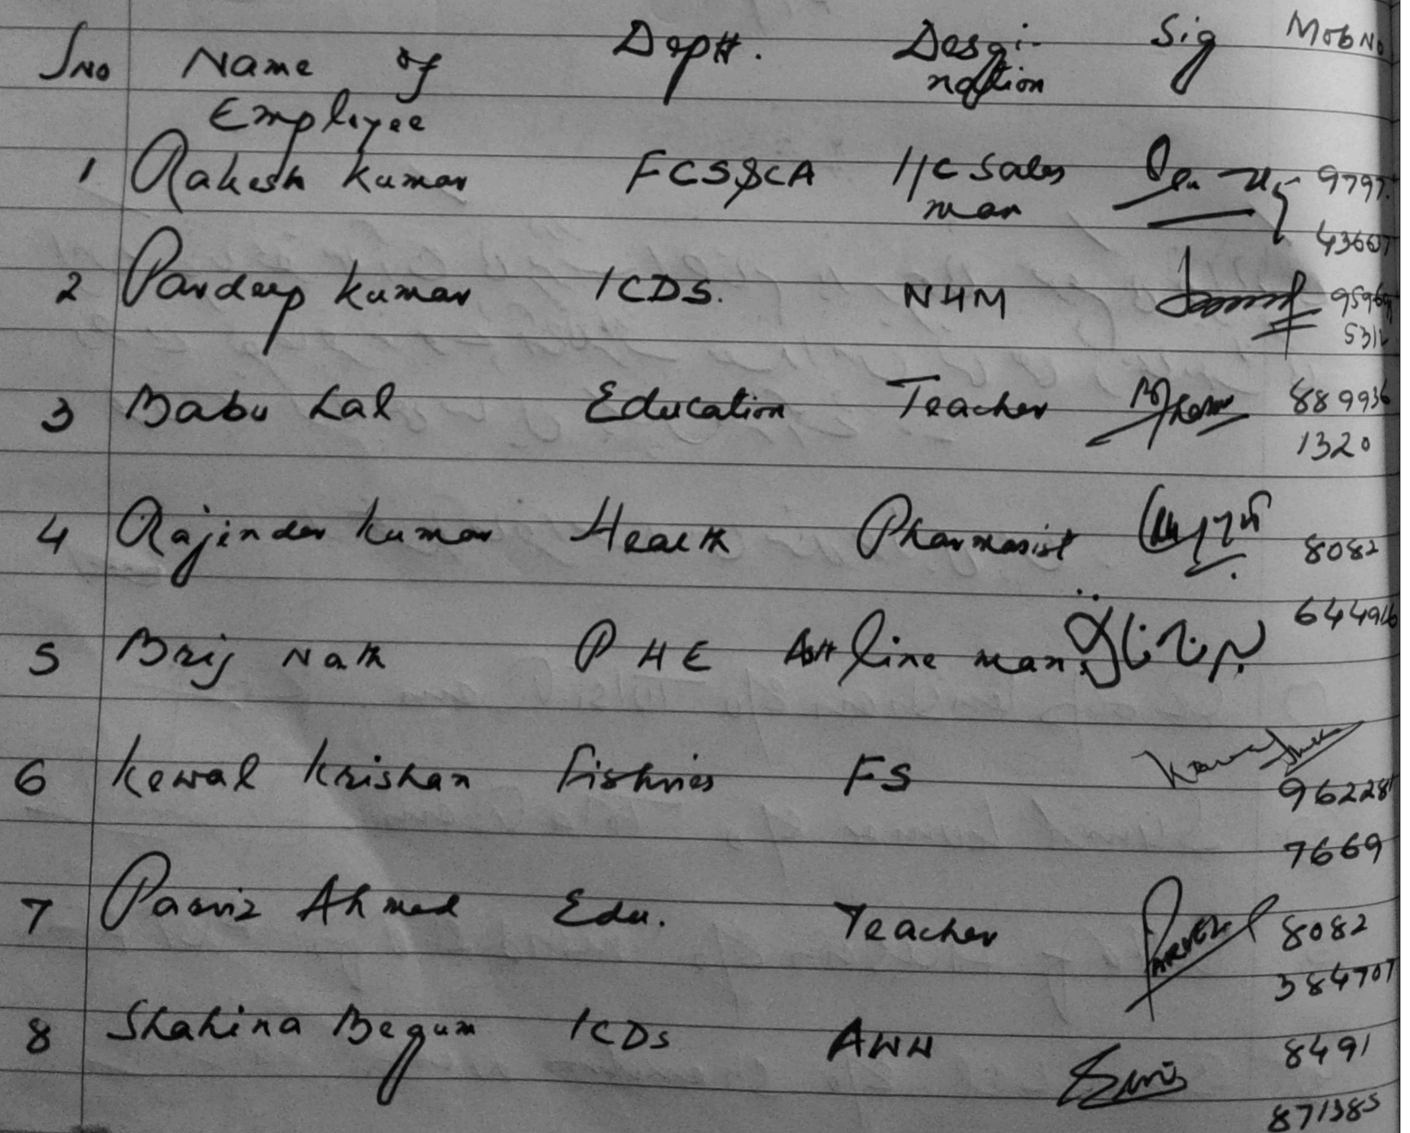 SNo Name of Deptt. Desgi- Sig Mob No
Employee nation
1 Rakesh Kumar FCS&CA I/C Sales 9797
man 43607
2 Pardeep Kumar ICDS. NHM
5312
3 Babu Lal Education Teacher 889936
1320
4 Rajinder Kumar Health Pharmasist 8082
5 Brij Nath PHE Astt line man
6 Kewal Krishan Fishries FS
7669
7 Parviz Ahmed Edu. Teacher PARVEZ 8082
384707
8 Shahina Begum ICDs AWH 8491
871385